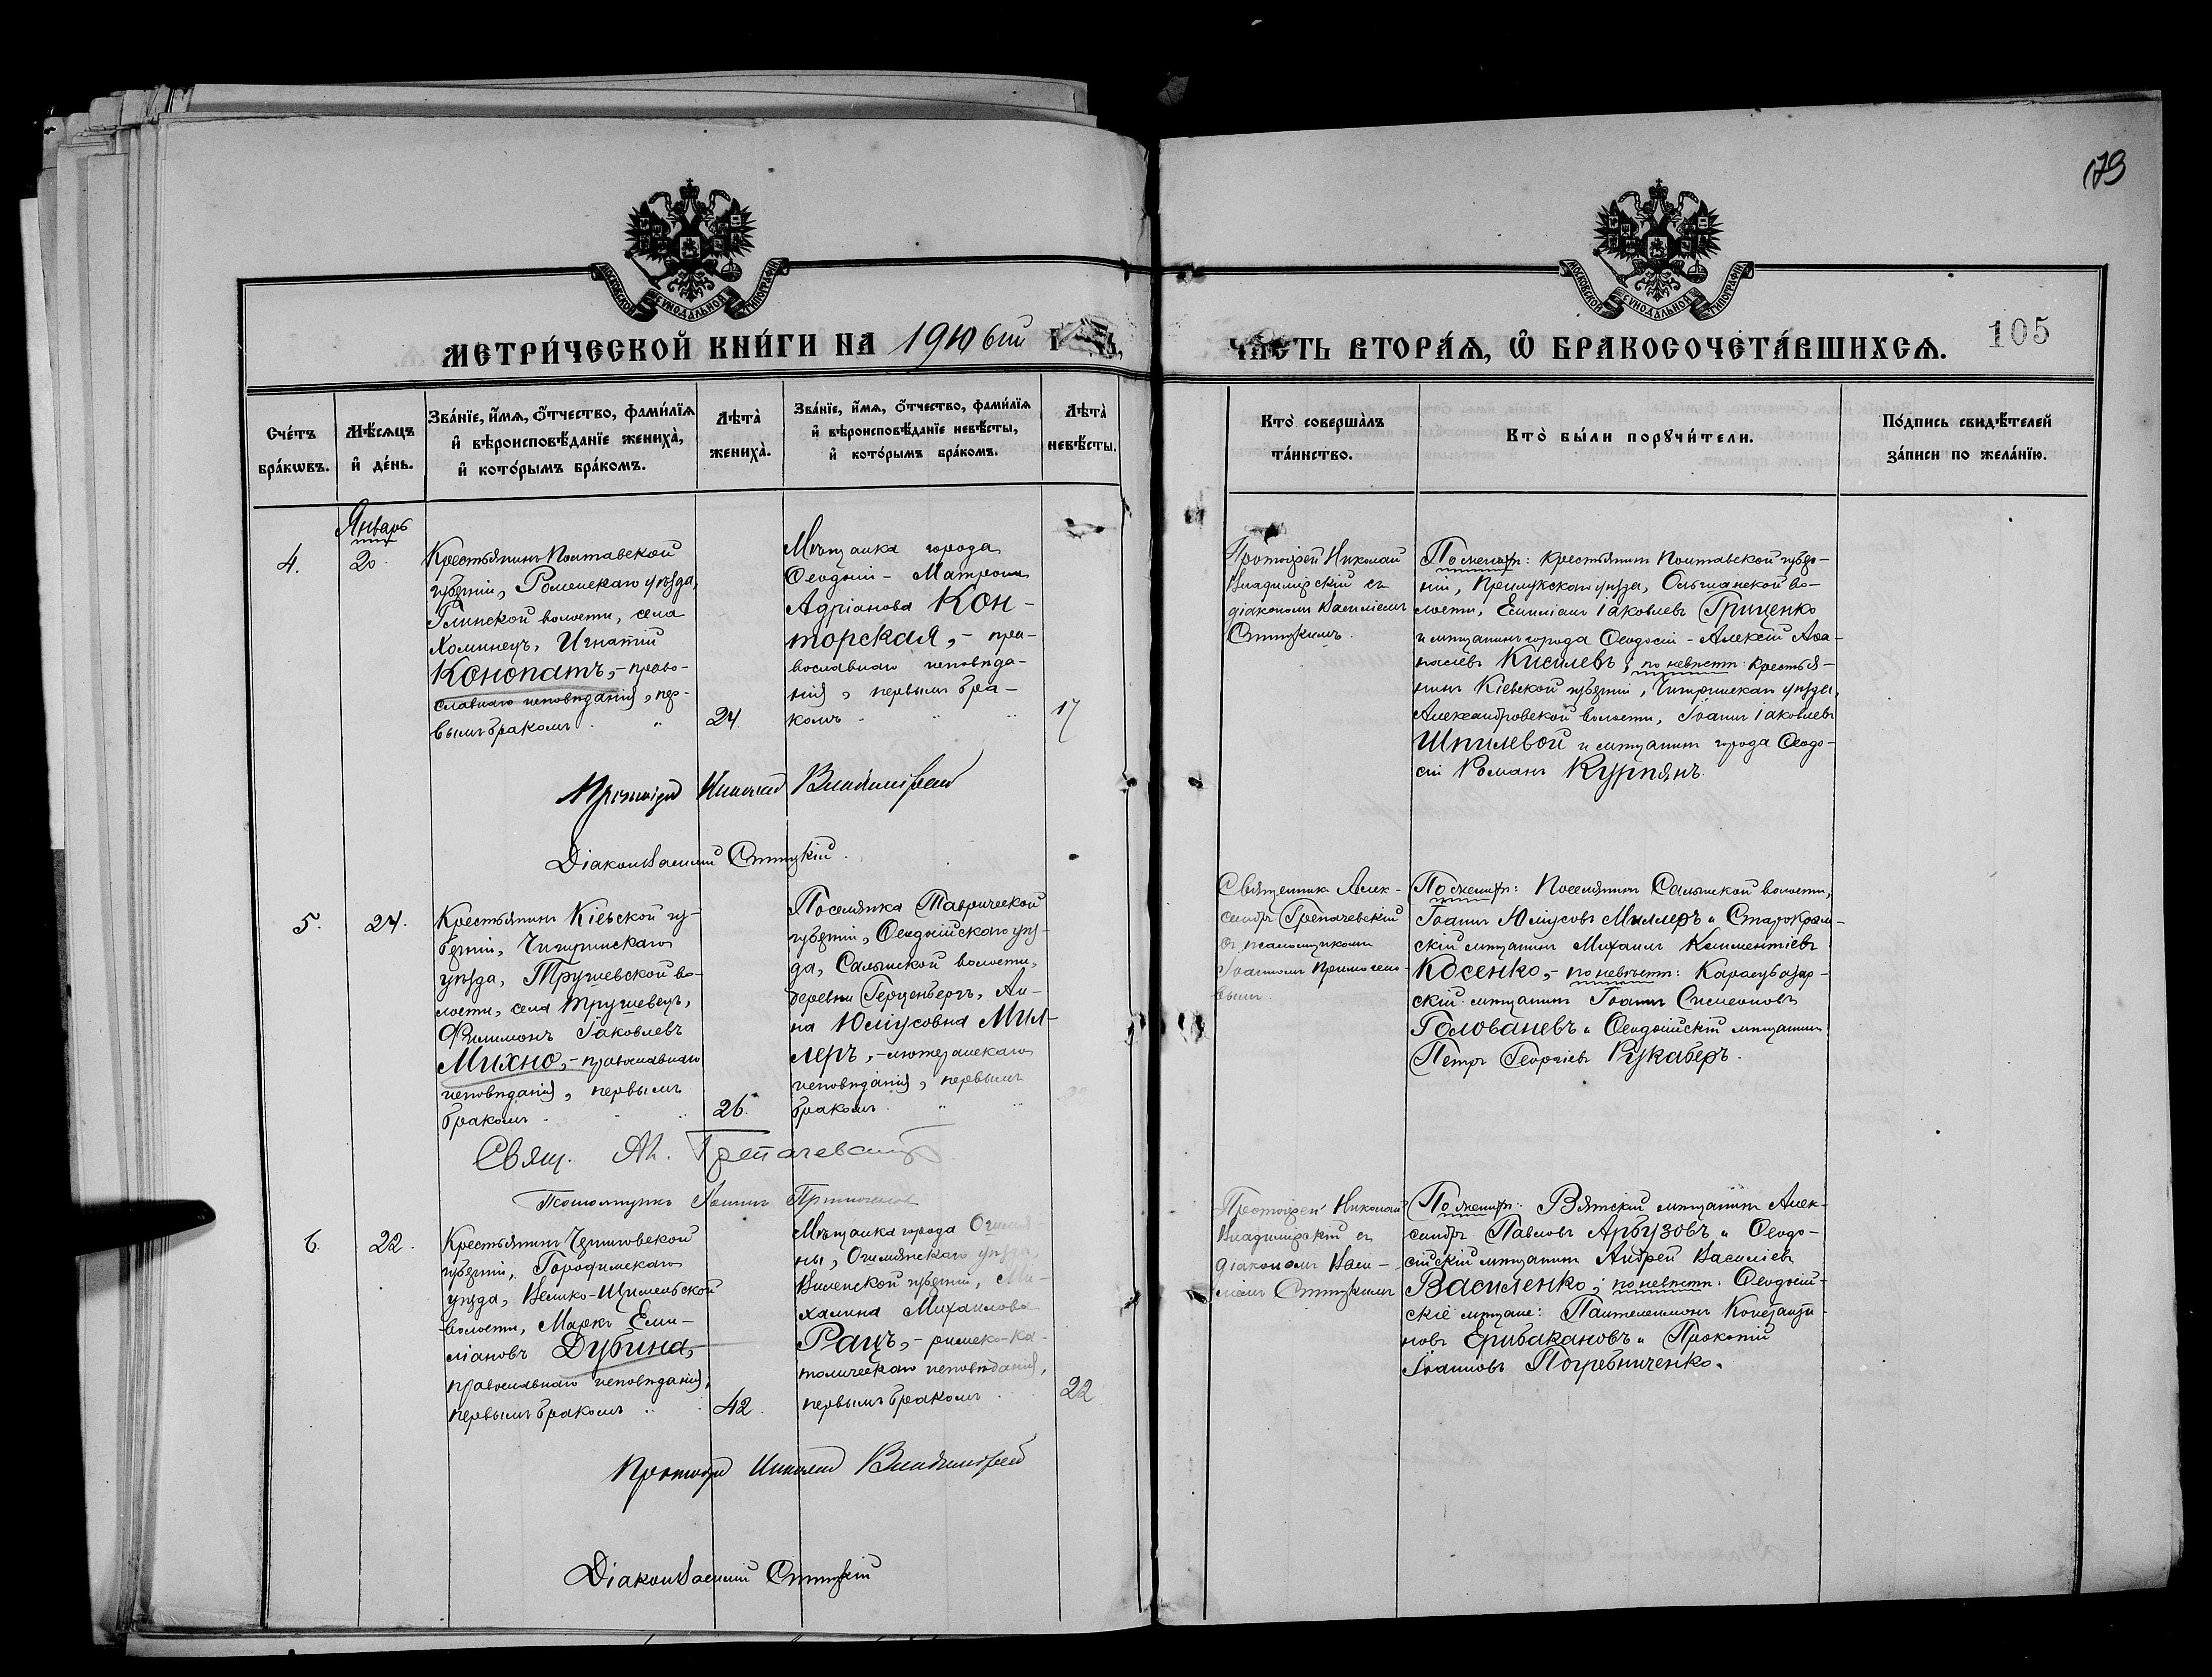 179
МОСКОВСКОЙ СѴНОДАЛЬНОЙ ТИПОГРАФІИ
МОСКОВСКОЙ СѴНОДАЛЬНОЙ ТИПОГРАФІИ
МЕТРИ́ЧЕСКОЙ КНИ́ГИ НА 1910 ый
ЧА́СТЬ ВТОРА́Ѧ, Ѽ БРАКОСОЧЕТА́ВШИХСѦ.
105
Сче́тъ бра́кѡвъ.
Мѣ́сѧцъ и҆ де́нь.
Зва́нїе, и҆́мѧ, ѻ҆́тчество, фами́лїѧ
и҆ вѣроисповѣ́данїе жениха̀,
и҆ кото́рымъ бра́комъ.
Лѣта̀ жениха̀.
Зва́нїе, и҆́мѧ, ѻ҆́тчество, фами́лїѧ
и҆ вѣроисповѣ́данїе невѣ́сты,
и҆ кото́рымъ бра́комъ.
Лѣта̀ невѣ́сты.
Кто̀ соверша́лъ та́инство.
Кто̀ бы́ли порꙋчи́тели.
По́дпись свидѣ́телей
за́писи по жела́нїю.
Январь
4.
20.
Крестьянинъ Полтавской
губерніи, Роменскаго уѣзда,
Глинской волости, села
Хоминецъ, Игнатій
Конопатъ, - право-
славнаго исповѣданія, пер-
вымъ бракомъ.
24.
Мѣщанка города
Ѳеодосіи - Матрона
Адріанова Кон-
торская, - пра-
вославнаго исповѣда-
нія, первымъ бра-
комъ
17
Протоіерей Николай
Владимірскій съ
діакономъ Василіемъ
Протоіерей Николай Владимірскій
Діаконъ Василій
По женихѣ: крестьянинъ Полтавской губер-
ніи, Прилукскаго уѣзда, Ольшанской во-
лости, Іаковлевъ Гриценко
и мѣщанинъ города Ѳеодосіи - Алексій Аѳа-
насіевъ Киселевъ; по невѣстѣ: крестья-
нинъ Кіевской губерніи, Чигиринскаго уѣзда,
Александровской волости, Іоаннъ Іаковлевъ
Шпилевой и мѣщанинъ города Ѳеодо-
сіи Романъ Курпянъ.
5.
24.
Крестьянинъ Кіевской гу-
берніи, Чигиринскаго
уѣзда, Трушевской во-
лости, села Трушевецъ,
Филимонъ Іаковлевъ
Михно, - православнаго
исповѣданія, первымъ
бракомъ.
26.
Поселянка Таврической
губерніи, Ѳеодосійскаго уѣз-
да, Салынской волости,
деревни Герценбергъ, Ан-
на Юліусовна Мил-
леръ, - лютеранскаго
исповѣданія, первымъ
бракомъ.
Священникъ Алек-
сандръ Грепачевскій
съ псаломщикомъ
Іоанномъ
Свящ. Ал. Грепачевскій
Псаломщикъ Іоаннъ
По женихѣ: Поселянинъ Салынской волости,
Іоаннъ Юліусовъ Миллеръ и Старокрым-
скій мѣщанинъ Михаилъ Климентіевъ
Косенко, - по невѣстѣ: Карасубазар-
скій мѣщанинъ Іоаннъ Симеоновъ
Голованевъ и Ѳеодосійскій мѣщанинъ
Петръ Георгіевъ Рукаберъ.
6.
22.
Крестьянинъ Черниговской
губерніи, Городнянскаго
уѣзда, Велико-Щимельской
волости, Маркъ Еми-
ліановъ Дубина,
православнаго исповѣданія,
первымъ бракомъ
42.
Мѣщанка города Ошмя-
ны, Ошмянскаго уѣзда,
Виленской губерніи, Ми-
халина Михаилова
Рацъ, - римско-ка-
толическаго исповѣданія,
первымъ бракомъ
22
Протоіерей Николай
Владимірскій съ
діакономъ Васи-
ліемъ
По женихѣ: Вятскій мѣщанинъ Алек-
сандръ Павловъ Арбузовъ и Ѳеодо-
сійскій мѣщанинъ Андрей Василіевъ
Василенко; по невѣстѣ: Ѳеодосій-
скіе мѣщане: Пантелеимонъ Константи-
новъ Ерибакановъ и Прокопій
Іоанновъ Погребниченко.
Протоіерей Николай Владимірскій
Діаконъ Василій